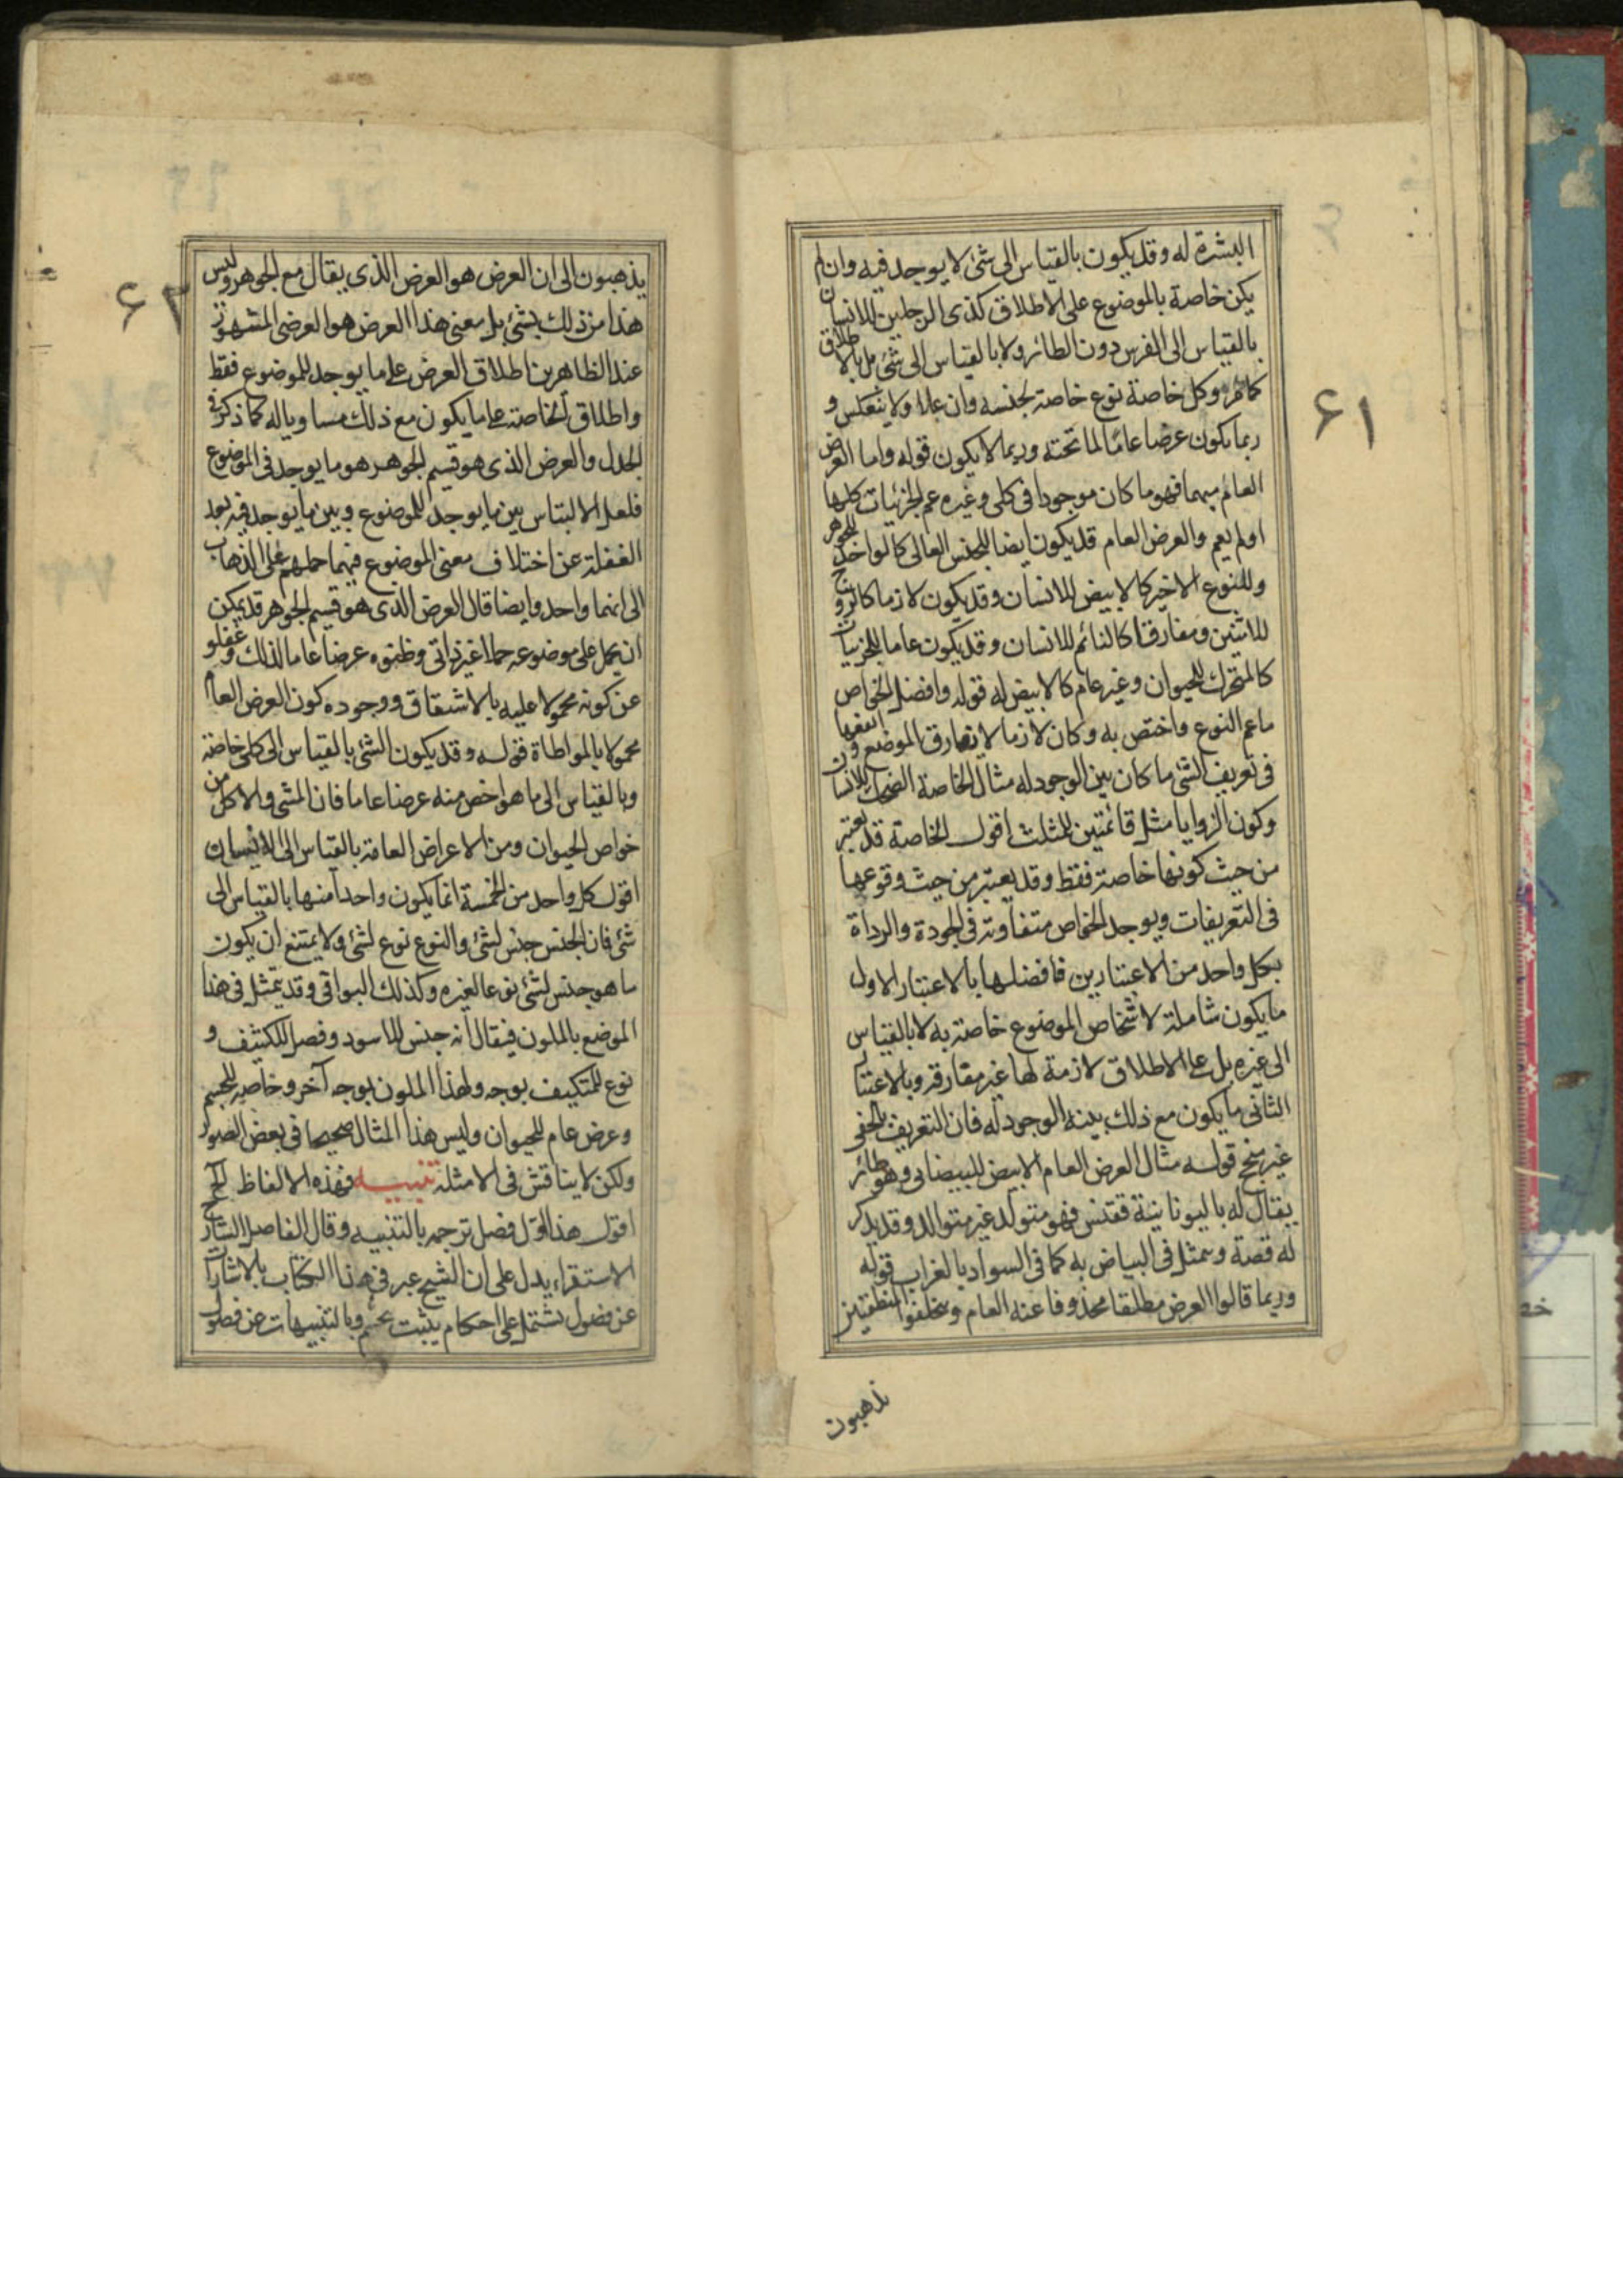 ٦١
البشرة له وقد يكون بالقياس الى شئ لا يوجد فيه وان لم
يكن خاصة بالموضوع على الاطلاق كذى الرجلين للانسان
بالقياس الى الفرس دون الطائر ولا بالقياس الى شئ بل بالاطلاق
كما مر وكل خاصة نوع خاصة لجنسه وان علا ولا ينعكس و
ربما يكون عرضا عاما لما تحته وربما لا يكون قوله واما العرض
العام منهما فهو ما كان موجودا فى كلى وغيره عم الجزئيات كلها
او لم يعم والعرض العام قد يكون ايضا للجنس العالى كالواحد للجوهر
وللنوع الاخير كالابيض للانسان وقد يكون لازما كالزوج
للاثنين ومفارقا كالنائم للانسان وقد يكون عاما للجزئيات
كالمتحرك للحيوان وغير عام كالابيض له قوله وافضل الخواص
ما عم النوع واختص به وكان لازما لا يفارق الموضوع وانفعها
فى تعريف الشئ ما كان بين الوجود له مثال الخاصة الضحاك للانسان
وكون الزوايا مثل قائمتين للمثلث اقول الخاصة قد يعتبر
من حيث كونها خاصة فقط وقد يعتبر من حيث وقوعها
فى التعريفات ويوجد الخواص متفاوتة فى الجودة والرداة
بكل واحد من الاعتبارين فافضلها بالاعتبار الاول
ما يكون شاملة لاشخاص الموضوع خاصة به لا بالقياس
الى غيره بل على الاطلاق لازمة لها غير مفارقة وبالاعتبار
الثانى ما يكون مع ذلك بينة الوجود له فان التعريف بالخفى
غير منجح قوله مثال العرض العام الابيض للبيضانى وهو طائر
يقال له باليونانية ققنس فهو متولد غير متوالد وقد يذكر
له قصة ويتمثل فى البياض به كما فى السواد بالغراب قوله
وربما قالوا العرض مطلقا محذوفا عنه العام ومتخلفوا المنطقيين
يذهبون
٦٢
يذهبون الى ان العرض هو العرض الذى يقال مع الجوهر وليس
هذا من ذلك بشئ بل معنى هذا العرض هو العرضى المشهور
عند الظاهرين اطلاق العرض على ما يوجد للموضوع فقط
واطلاق الخاصة على ما يكون مع ذلك مساويا له كما ذكر فى
الجدل والعرض الذى هو قسيم الجوهر هو ما يوجد فى الموضوع
فلعل الالتباس بين ما يوجد للموضوع وبين ما يوجد فيه بعد
الغفلة عن اختلاف معنى الموضوع فيهما حملهم على الذهاب
الى انهما واحد وايضا قال العرض الذى هو قسيم الجوهر قد يمكن
ان يحمل على موضوعه حملا غير ذاتى وظنوه عرضا عاما لذلك وغفلوا
عن كونه محمولا عليه بالاشتقاق ووجوده كون العرض العام
محمولا بالمواطاة قوله وقد يكون الشئ بالقياس الى كلى خاصة
وبالقياس الى ما هو اخص منه عرضا عاما فان المشى والاكل من
خواص الحيوان ومن الاعراض العامة بالقياس الى الانسان
اقول كل واحد من الخمسة انما يكون واحدا منها بالقياس الى
شئ فان الجنس جنس لشئ والنوع نوع لشئ ولا يمتنع ان يكون
ما هو جنس لشئ نوعا لغيره وكذلك البواقى وقد يتمثل فى هذا
الموضع بالملون فيقال انه جنس للاسود وفصل للكثيف و
نوع للمتكيف بوجه ولهذا الملون بوجه آخر وخاصة للجسم
وعرض عام للحيوان وليس هذا المثال صحيحا فى بعض الصور
ولكن لا يناقش فى الامثلة تنبيه فهذه الالفاظ الخ
اقول هذا اول فصل ترجمه بالتنبيه وقال الفاضل الشارح
الاستقراء يدل على ان الشيخ عبر فى هذا الكتاب بالاشارات
عن فصول تشتمل على احكام يثبت بحجم وبالتنبيهات عن فصول